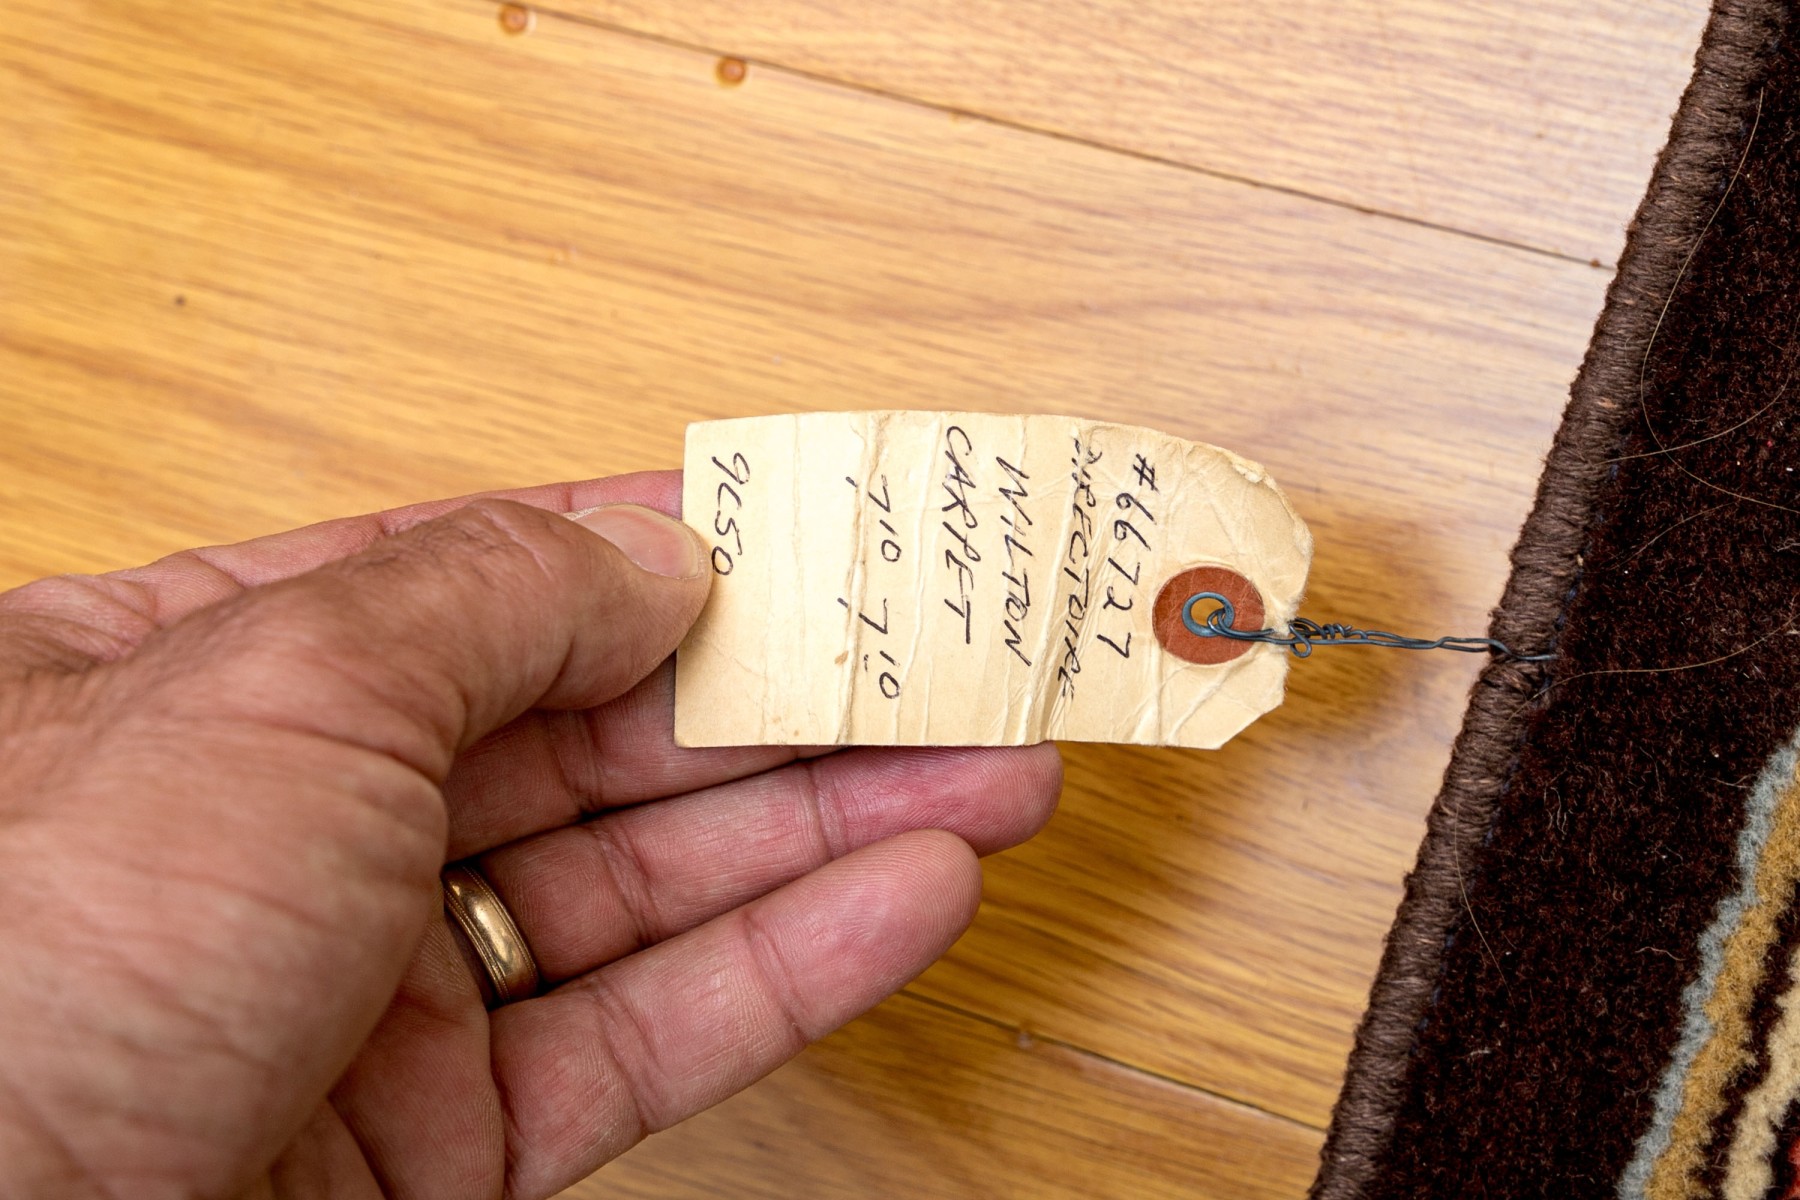 #66727
DIRECTOIRE
WILTON
CARPET
7 10 7 10
9C50